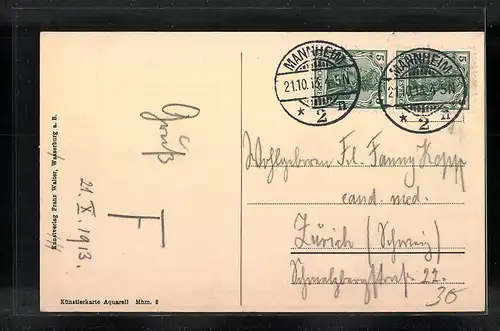 Kunstverlag Franz Walter, Wasserburg a. B.
Gruß
F
21 X. 1913.
Künstlerkarte Aquarell Mhm. 3
5
5
MANNHEIM
21.10.13. 4-5N
* 2 n
MANNHEIM
* 2 n
Wohlgeboren Frl. Fanny Kopp
cand. med.
Zürich (Schweiz)
Schmelzbergstraße 22.
30